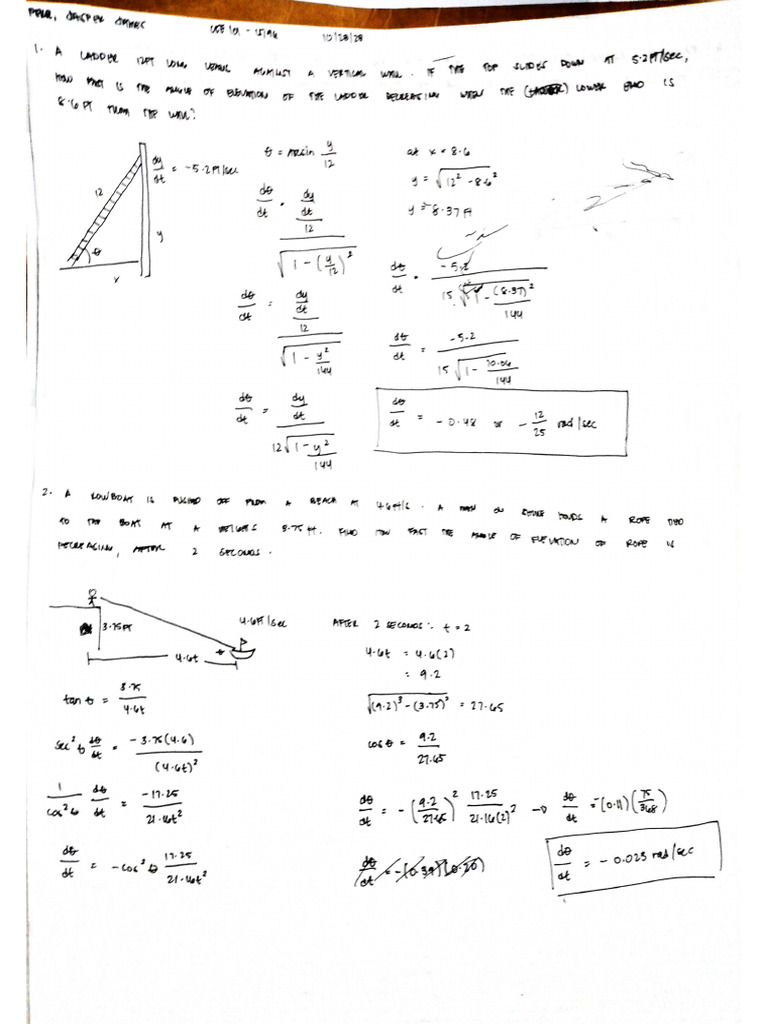 PERR, JASPER JAMES USE 101 - 15/96 10/28/28
1. A LADDER 12FT LONG LEANS AGAINST A VERTICAL WALL. IF THE TOP SLIDES DOWN AT 5.2 FT/SEC,
HOW FAST IS THE ANGLE OF ELEVATION OF THE LADDER DECREASING WHEN THE LOWER END IS
8.6 FT FROM THE WALL?
dy/dt = -5.2 FT/SEC
12
y
θ
x
θ = Arcsin y/12
dθ/dt = (dy/dt / 12) / √(1 - (y/12)²)
dθ/dt = (dy/dt / 12) / √(1 - y²/144)
dθ/dt = (dy/dt) / (12√(1 - y²/144))
at x = 8.6
y = √(12² - 8.6²)
y = 8.37 ft
dθ/dt = -5.2 / (15√(1 - (8.37)²/144))
dθ/dt = -5.2 / (15√(1 - 70.06/144))
dθ/dt = -0.48 or -12/25 rad/sec
2. A ROWBOAT IS PUSHED OFF FROM A BEACH AT 4.6 FT/S. A MAN ON SHORE HOLDS A ROPE TIED
TO THE BOAT AT A HEIGHT 3.75 FT. FIND HOW FAST THE ANGLE OF ELEVATION OF ROPE IS
DECREASING, AFTER 2 SECONDS.
3.75 FT
4.6 FT/SEC
θ
4.6t
tan θ = 3.75/4.6t
sec² θ dθ/dt = -3.75(4.6)/(4.6t)²
1/cos² θ dθ/dt = -17.25/21.16t²
dθ/dt = -cos² θ 17.25/21.16t²
AFTER 2 SECONDS: t = 2
4.6t = 4.6(2)
= 9.2
√((9.2)³ - (3.75)³) = 27.65
cos θ = 9.2/27.65
dθ/dt = -(9.2/27.65)² 17.25/21.16(2)² → dθ/dt = -(0.11)(75/368)
dθ/dt = -(0.39)(0.20)
dθ/dt = -0.023 rad/sec